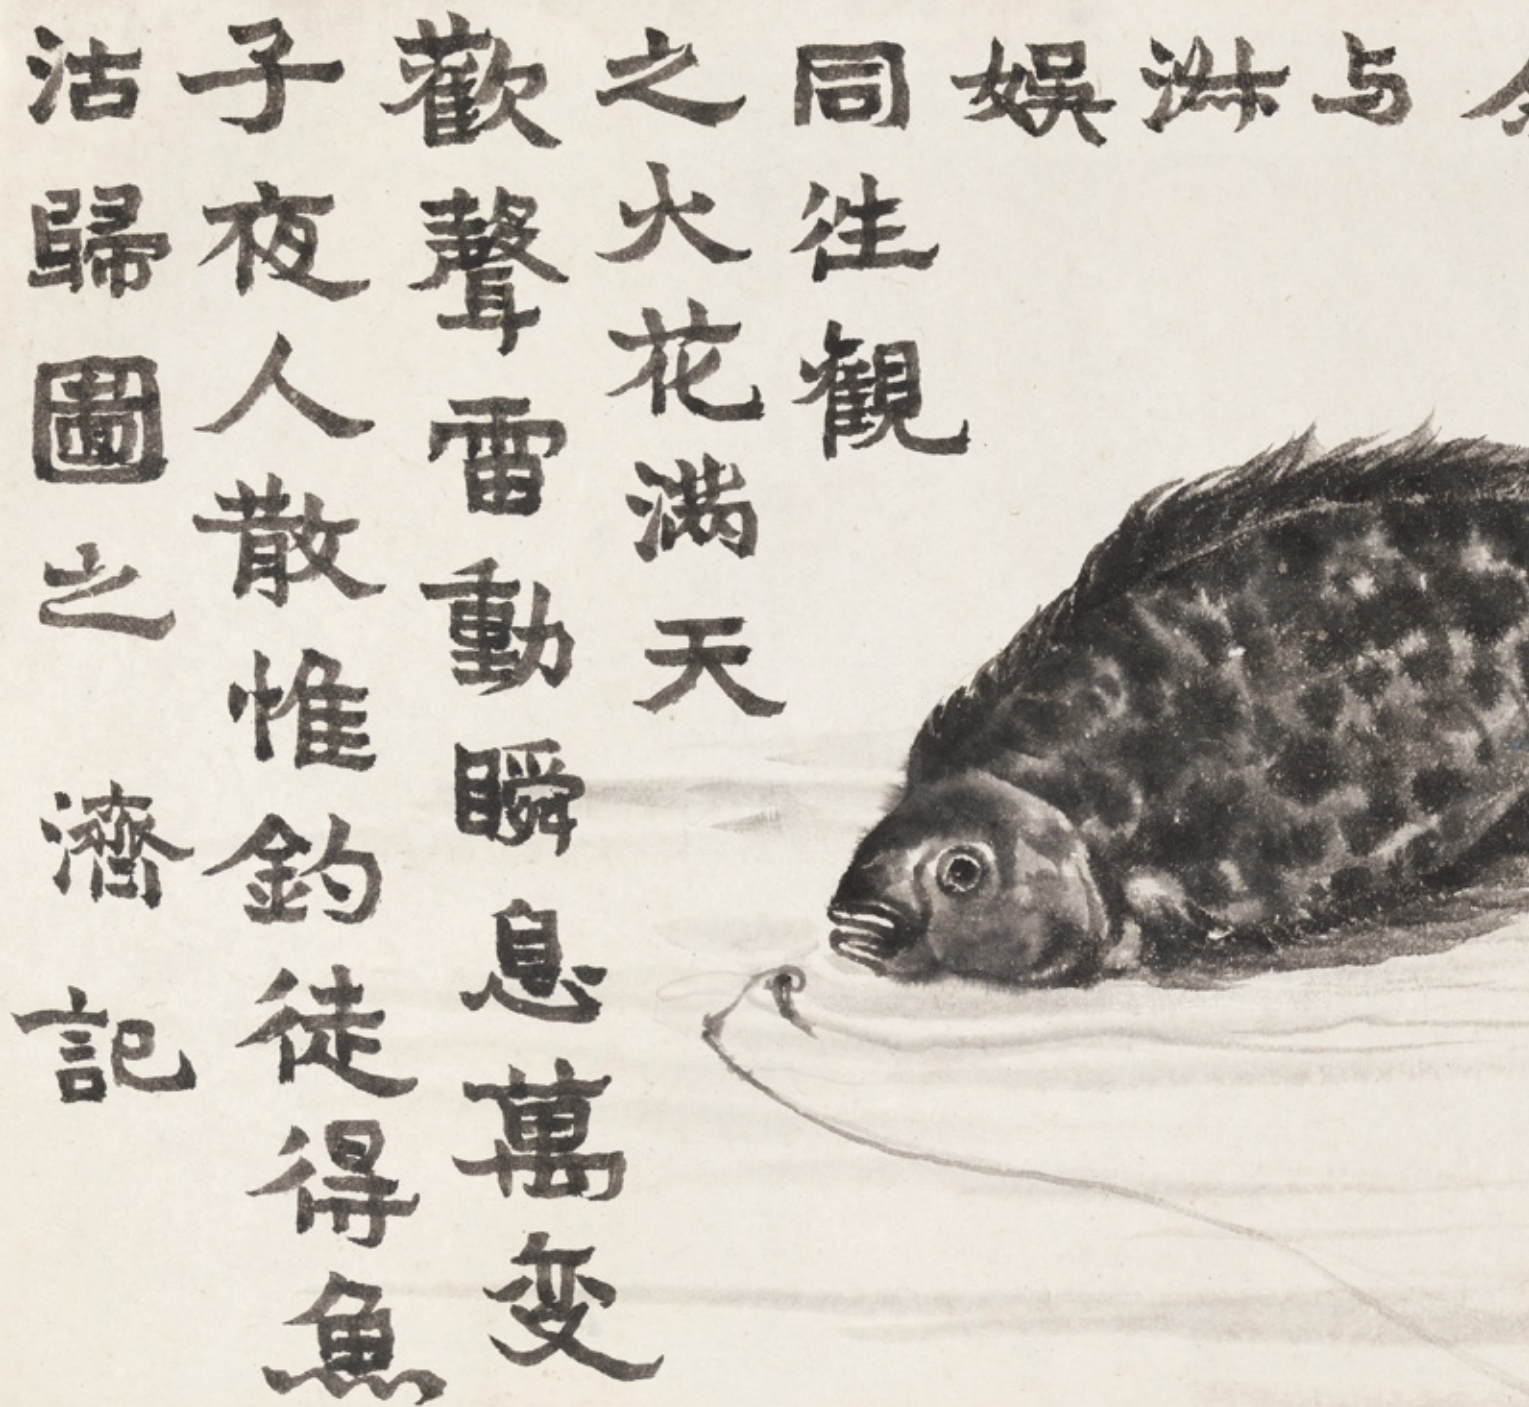 与
娱
同往觀
之火花满天
歡聲雷動瞬息萬变
子夜人散惟釣徒得魚
沽歸圖之 濟記